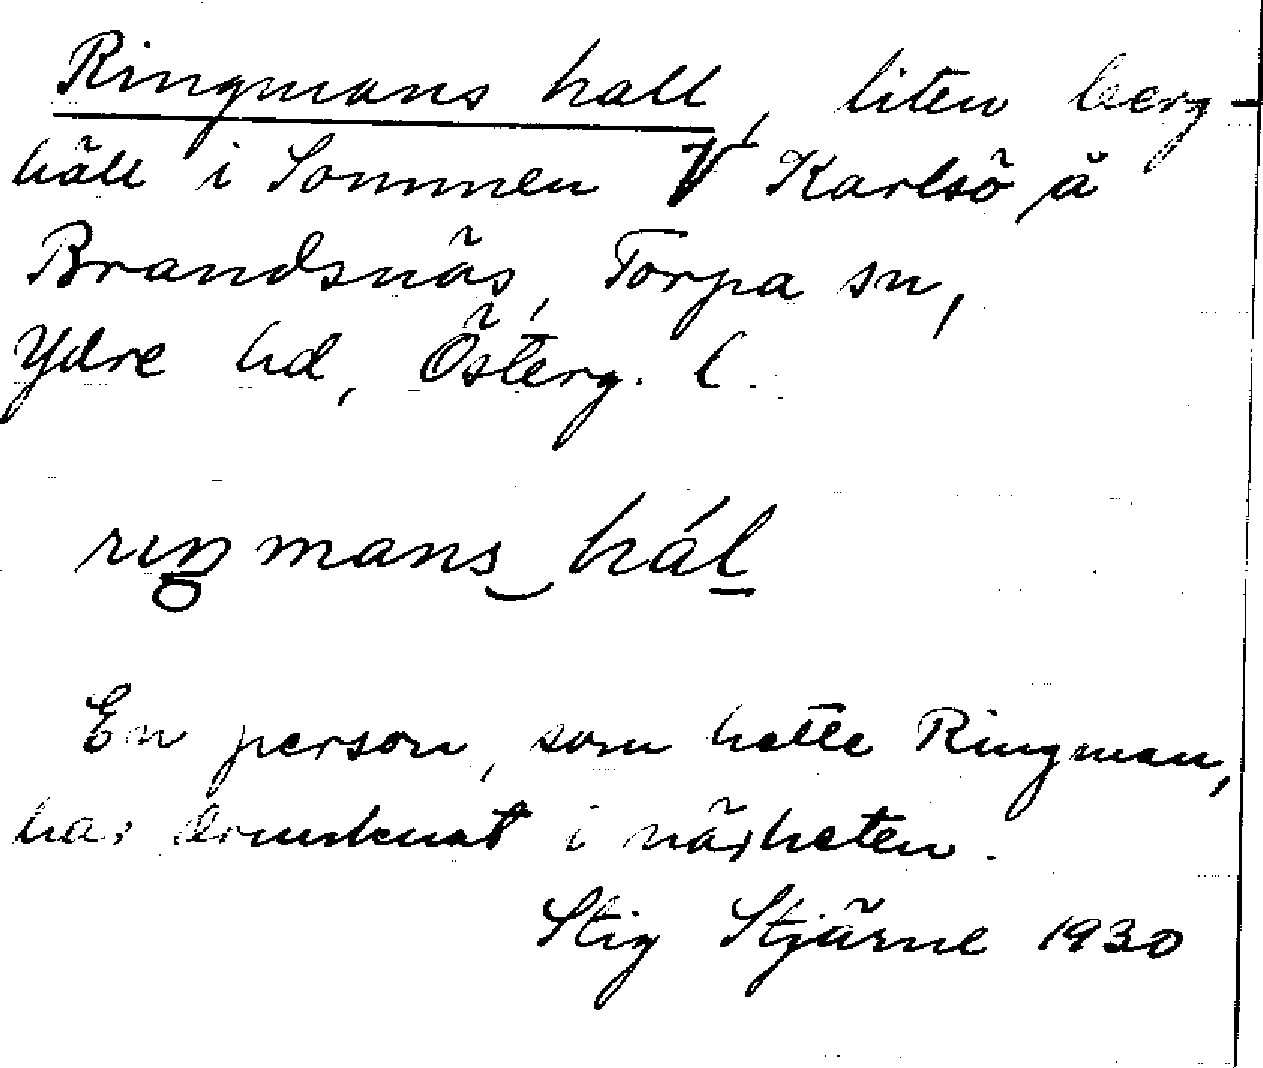 Ringmans hall, liten berg-
häll i Sommen V Karlsö å
Brandsnäs, Torpa sn,
Ydre hd, Österg. l.
rıŋmans‿hál
En person, som hette Ringman,
har drunknat i närheten.
Stig Stjärne 1930